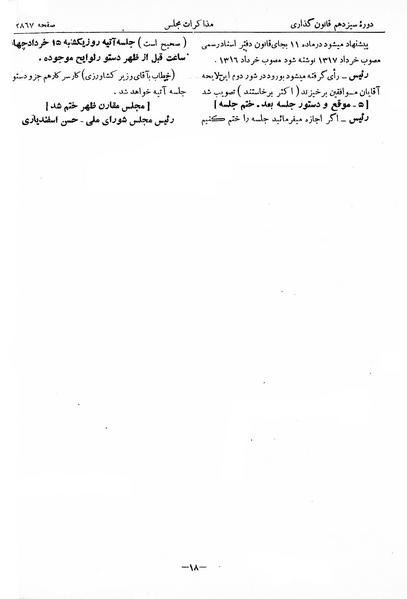 دورهٔ سیزدهم قانون گذاری
مذاکرات مجلس
صفحه ۲۸۶۷
پیشنهاد میشود درماده ۱۱ بجای قانون دفتر اسنادرسمی
مصوب خرداد ۱۳۱۷ نوشته شود مصوب خرداد ۱۳۱۶ .
رئیس ـ رأی گرفته میشود بورود در شور دوم این لایحه
آقایان موافقین برخیزند ( اکثر برخاستند ) تصویب شد
[ ۵ ـ موقع و دستور جلسه بعد ـ ختم جلسه ]
رئیس ـ اگر اجازه میفرمائید جلسه را ختم کنیم
( صحیح است ) جلسه آتیه روز یکشنبه ۱۵ خرداد چهار
ساعت قبل از ظهر دستور لوایح موجوده .
(خطاب بآقای وزیر کشاورزی) کار سرکار هم جزو دستور
جلسه آتیه خواهد شد .
[ مجلس مقارن ظهر ختم شد ]
رئیس مجلس شورای ملی ـ حسن اسفندیاری
—۱۸—